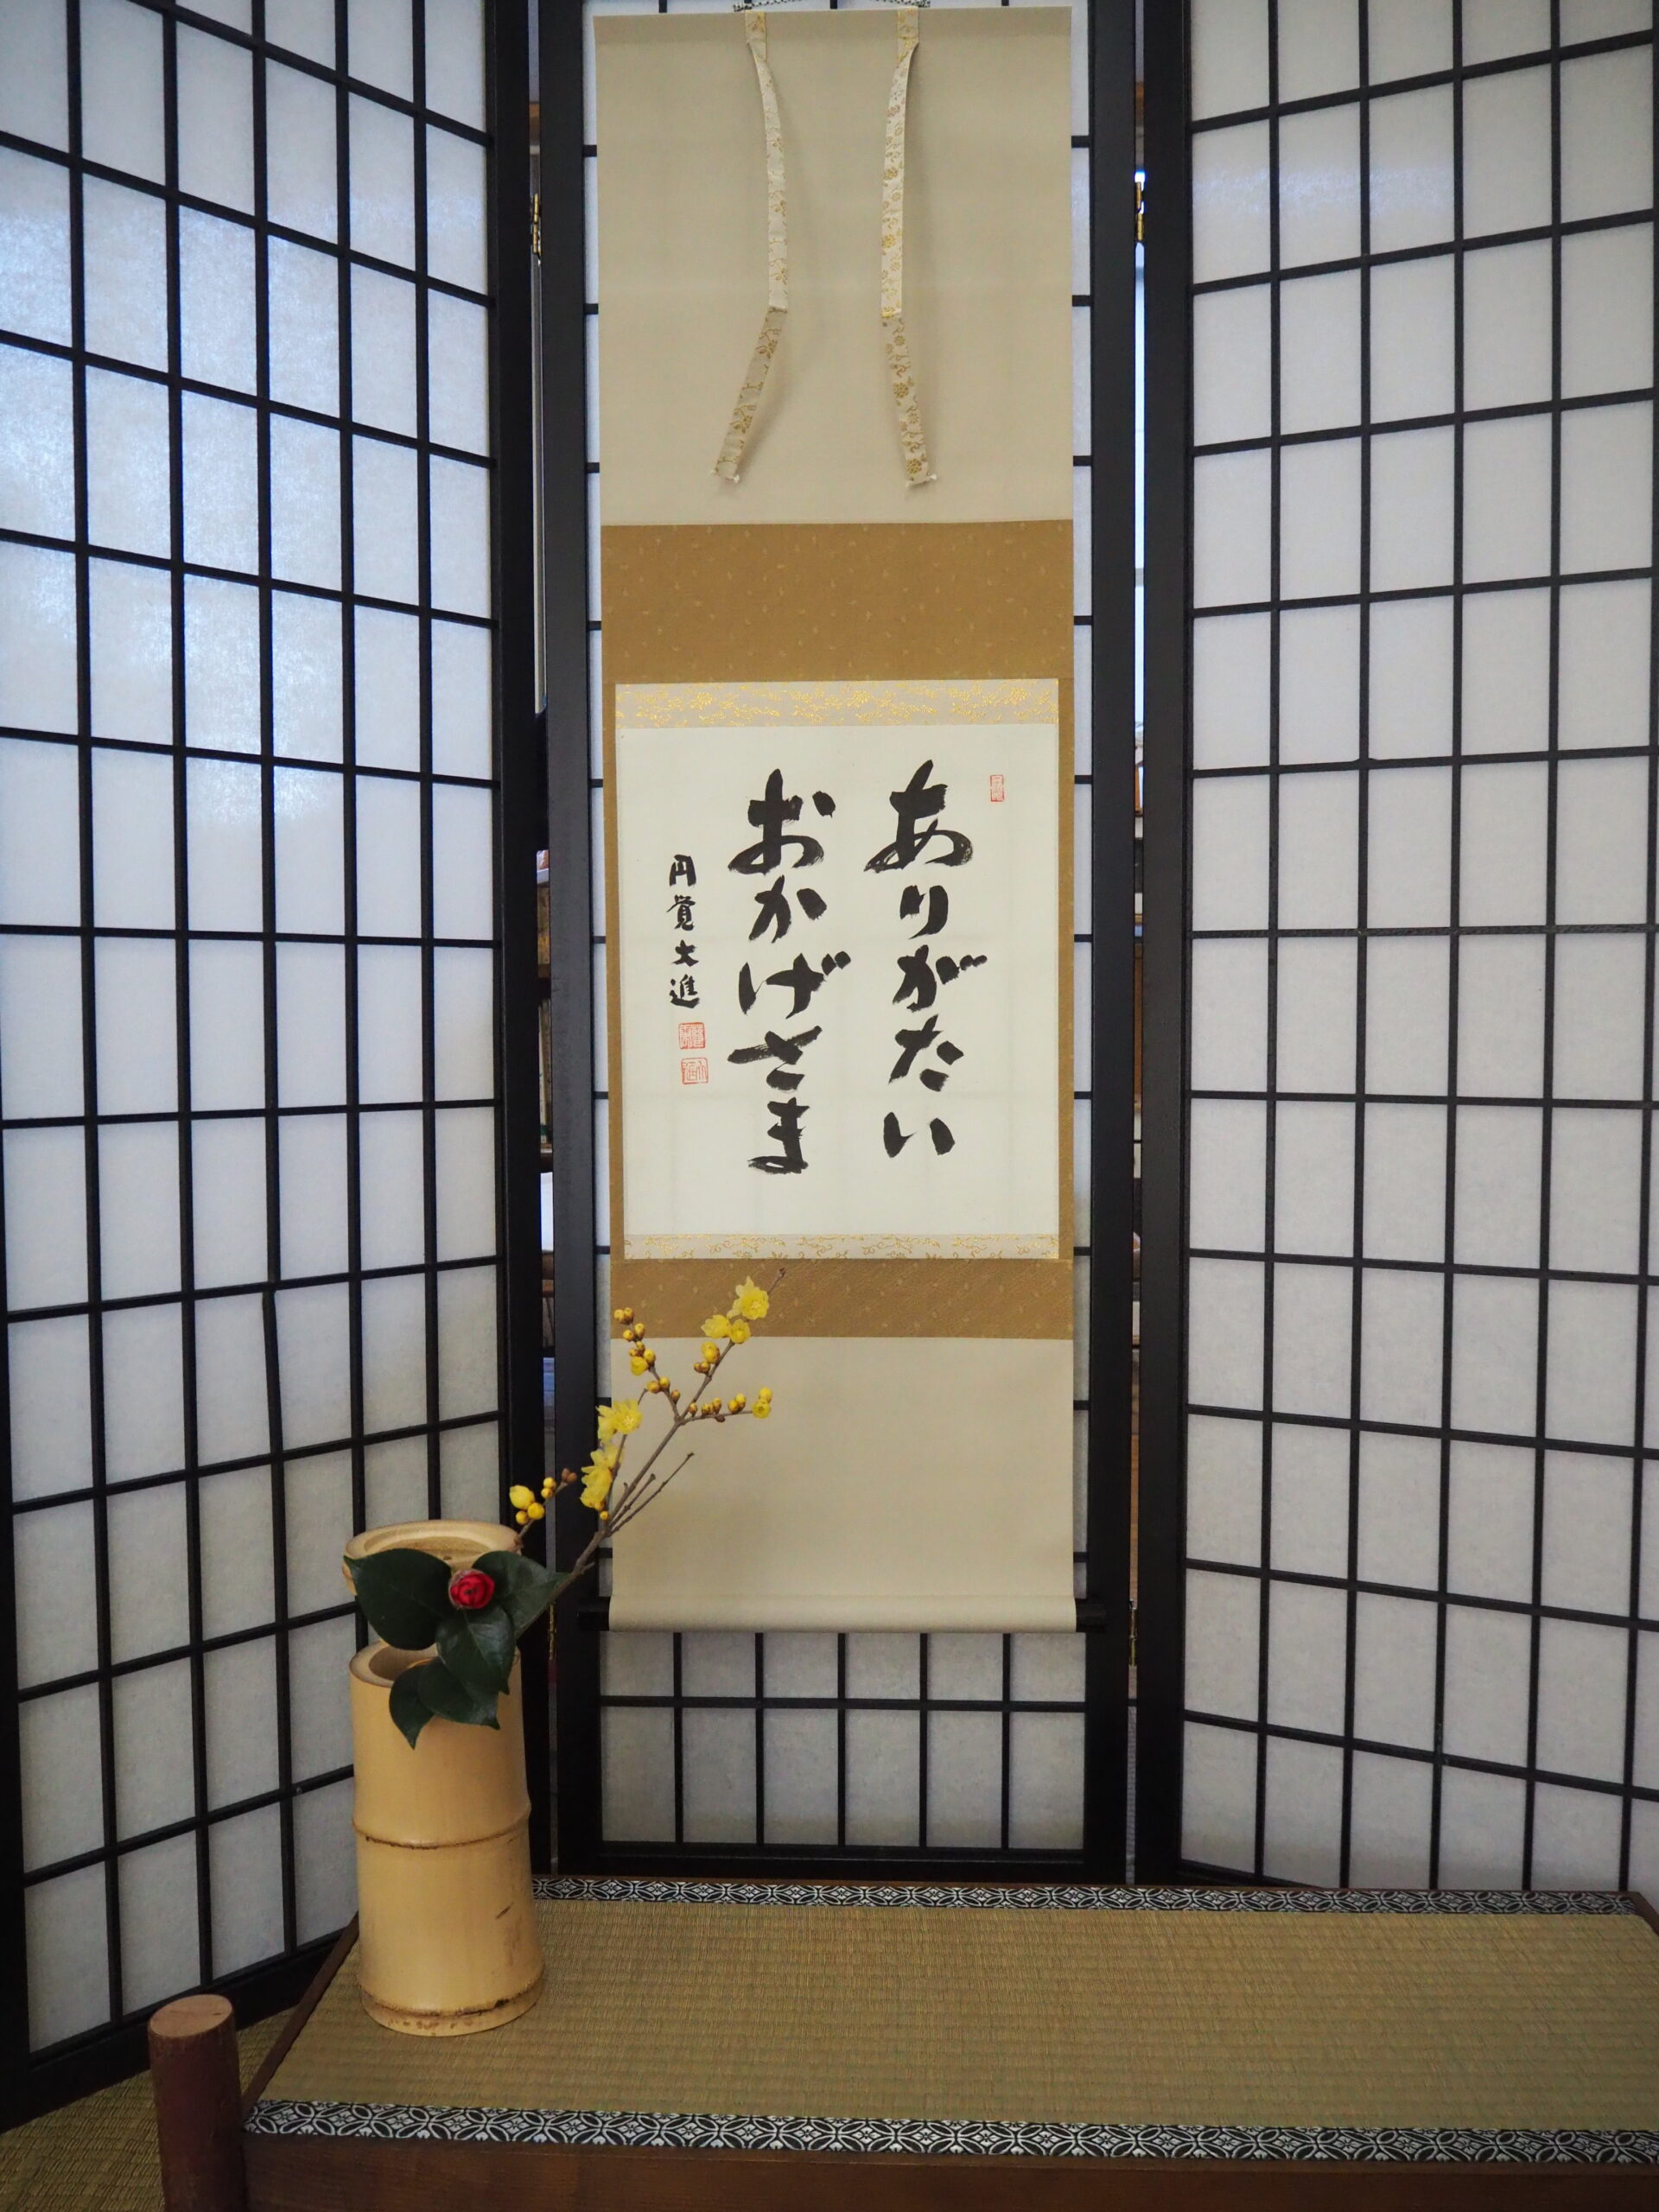 ありがたい
おかげさま
円覚大進